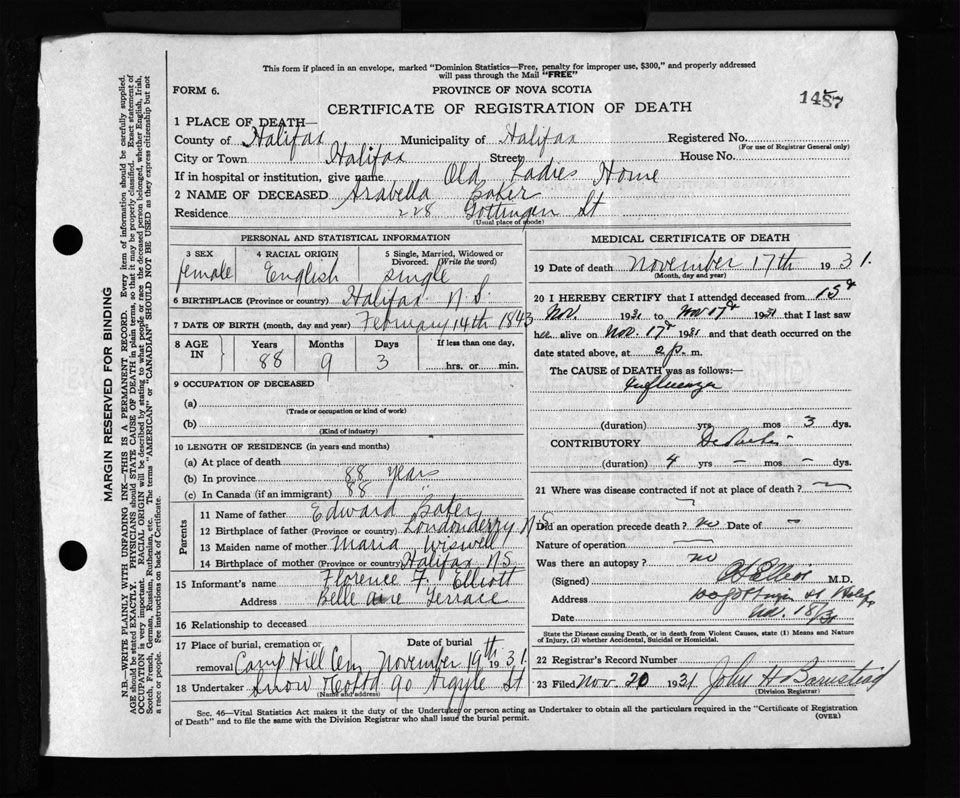 This form if placed in an envelope, marked "Dominion Statistics—Free, penalty for improper use, $300," and properly addressed
will pass through the Mail "FREE"
FORM 6.
PROVINCE OF NOVA SCOTIA
CERTIFICATE OF REGISTRATION OF DEATH
1 PLACE OF DEATH—
County of Halifax Municipality of Halifax Registered No.
(For use of Registrar General only)
City or Town Halifax Street House No.
If in hospital or institution, give name Old Ladies Home
2 NAME OF DECEASED Arabella Baker
Residence 228 Gottingen St
(Usual place of abode)
PERSONAL AND STATISTICAL INFORMATION
3 SEX 4 RACIAL ORIGIN 5 Single, Married, Widowed or Divorced. (Write the word)
female English single
6 BIRTHPLACE (Province or country) Halifax N.S.
7 DATE OF BIRTH (month, day and year) February 14th 1843
8 AGE IN Years Months Days If less than one day,
88 9 3 hrs. or min.
9 OCCUPATION OF DECEASED
(a)
(Trade or occupation or kind of work)
(b)
(Kind of industry)
10 LENGTH OF RESIDENCE (in years and months)
(a) At place of death
(b) In province 88 years
(c) In Canada (if an immigrant) 88 "
Parents
11 Name of father Edward Baker
12 Birthplace of father (Province or country) Londonderry N.S
13 Maiden name of mother Maria Wiswell
14 Birthplace of mother (Province or country) Halifax N.S.
15 Informant's name Florence F. Elliott
Address Belle Aire Terrace
16 Relationship to deceased
17 Place of burial, cremation or removal Camp Hill Cem Date of burial November 19th 1931
18 Undertaker Snow & Co Ltd 90 Argyle St
(Name and address)
MEDICAL CERTIFICATE OF DEATH
19 Date of death November 17th 1931.
(Month, day and year)
20 I HEREBY CERTIFY that I attended deceased from 15th
Nov. 1931 to Nov 17th 1931 that I last saw
her alive on Nov. 17th 1931 and that death occurred on the
date stated above, at 2 p. m.
The CAUSE of DEATH was as follows:—
Influenza
(duration) yrs mos 3 dys.
CONTRIBUTORY
(duration) 4 yrs – mos – dys.
21 Where was disease contracted if not at place of death?
Did an operation precede death? no Date of –
Nature of operation
Was there an autopsy? no
(Signed) M.D.
Address
Date
State the Disease causing Death, or in death from Violent Causes, state (1) Means and Nature
of Injury, (2) whether Accidental, Suicidal or Homicidal.
22 Registrar's Record Number
23 Filed Nov. 20 1931 John H Barnstead
(Division Registrar)
Sec. 46—Vital Statistics Act makes it the duty of the Undertaker or person acting as Undertaker to obtain all the particulars required in the "Certificate of Registration
of Death" and to file the same with the Division Registrar who shall issue the burial permit.
(OVER)
MARGIN RESERVED FOR BINDING
N.B.—WRITE PLAINLY WITH UNFADING INK—THIS IS A PERMANENT RECORD. Every item of information should be carefully supplied.
AGE should be stated EXACTLY. PHYSICIANS should STATE CAUSE OF DEATH in plain terms, so that it may be properly classified. Exact statement of
OCCUPATION is very important. RACIAL ORIGIN will be described by stating to what people or race the deceased person belonged, whether English, Irish,
Scotch, French, German, Russian, Ruthenian, etc. The terms "AMERICAN" or "CANADIAN" SHOULD NOT BE USED as they express citizenship but not
a race or people. See instructions on back of Certificate.